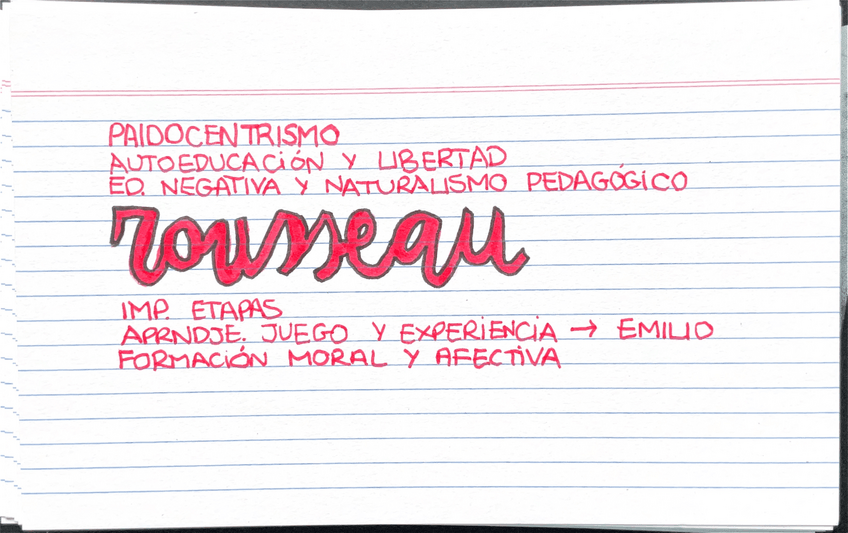 PAIDOCENTRISMO
AUTOEDUCACIÓN Y LIBERTAD
ED. NEGATIVA Y NATURALISMO PEDAGÓGICO
rousseau
IMP. ETAPAS
APRNDJE. JUEGO Y EXPERIENCIA → EMILIO
FORMACIÓN MORAL Y AFECTIVA